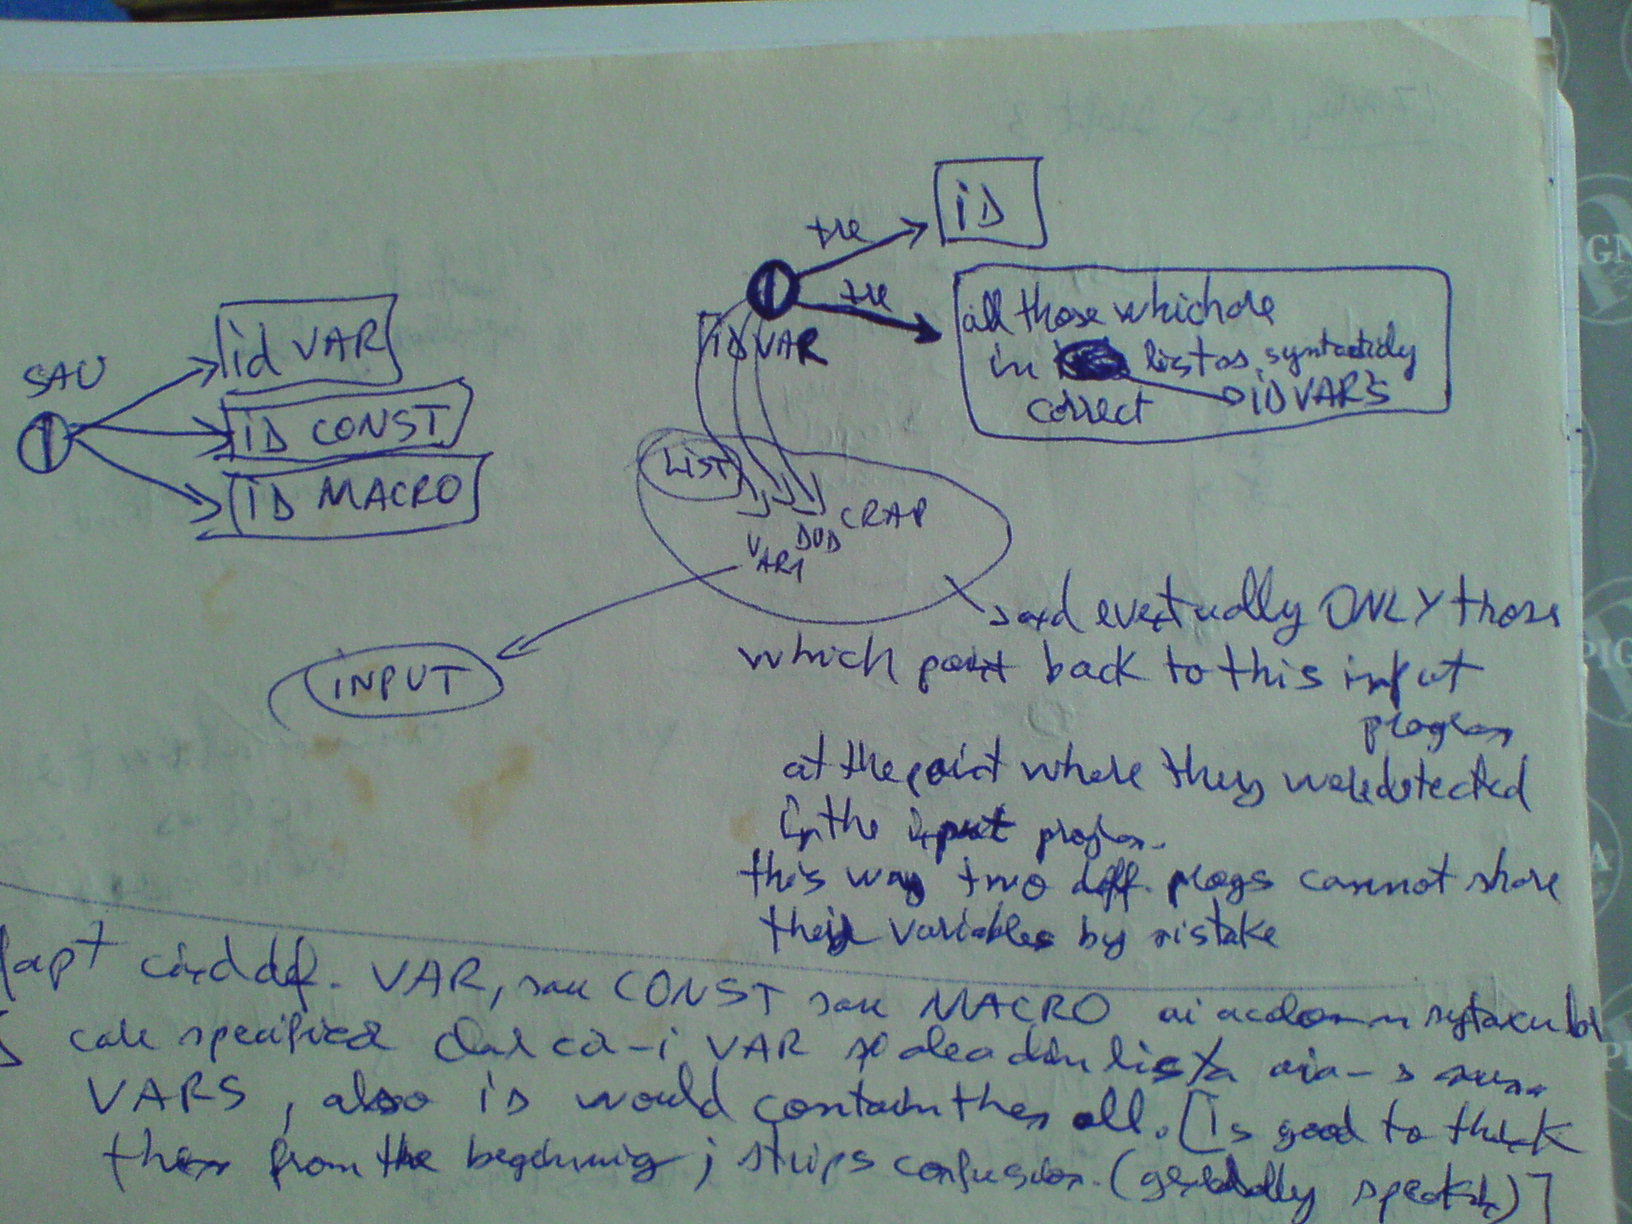 SAU
id VAR
iD CONST
iD MACRO
tre
iD
tre
iD VAR
all those which are
in list as syntactidly
correct iD VAR'S
LIST
VAR1 DUD CRAP
INPUT
and eventually ONLY those
which point back to this input
program
at the point where they were detected
in the input program.
this way two diff. progs cannot share
their variables by mistake
cind def. VAR, sau CONST sau MACRO ai
care specifica doar ca-i VAR si alea din lista aia-s
VARS, also iD would contain them all. [Is good to think
them from the beginning; strips confusion. (generally speaking)]